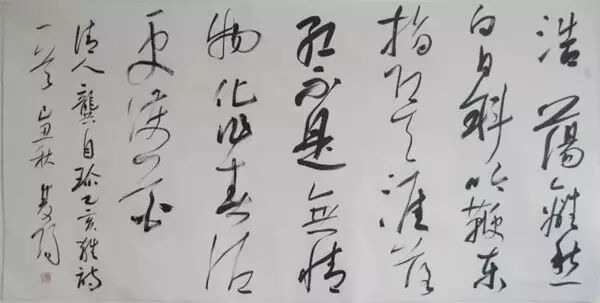 浩蕩離愁
白日斜吟鞭東
指即天涯落
紅不是無情
物化作春泥
更護花
清人龔自珍己亥雜詩
一首己丑秋